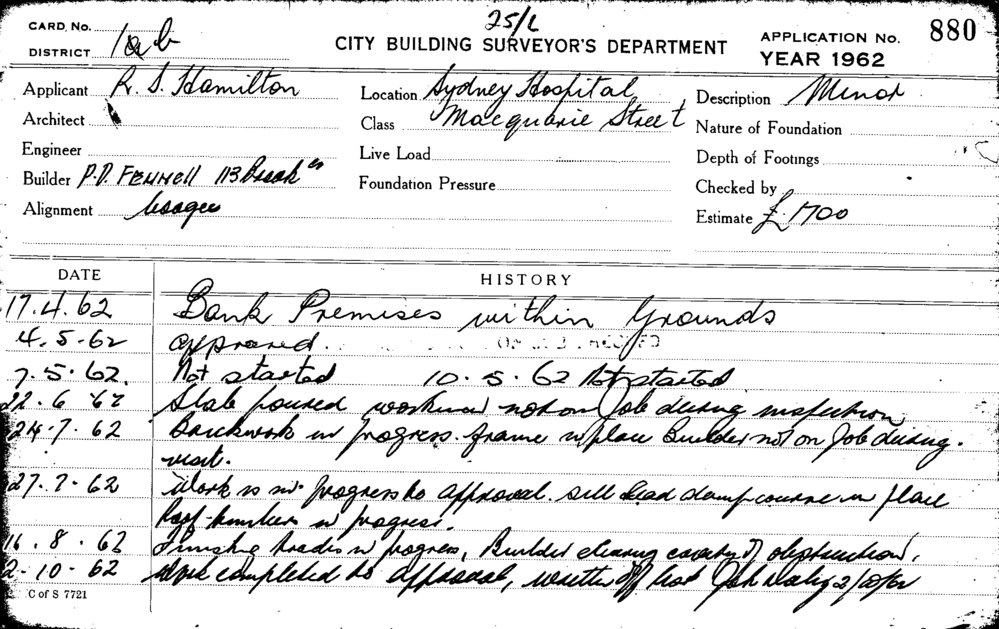 25/6
CARD, No.
DISTRICT 1ab
CITY BUILDING SURVEYOR'S DEPARTMENT
APPLICATION No. 880
YEAR 1962
Applicant R. S. Hamilton
Location Sydney Hospital
Description Minor
Architect
Class Macquarie Street
Nature of Foundation
Engineer
Live Load
Depth of Footings
Builder P.D. FENNELL 113
Foundation Pressure
Checked by
Alignment
Estimate £1700
DATE HISTORY
17.4.62 Bank Premises within Grounds
4.5.62 approved.
7.5.62. Not started 10.5.62 Not started
22.6.62 Slab poured workmen not on Job during inspection
24.7.62 Brickwork in progress. frame in place Builder not on Job during.
visit.
27.7.62 Work is in progress to approval. sill lead dampcourse in place
Roof timbers in progress.
16.8.62 Finishing trades in progress, Builder clearing cavity of obstruction.
2-10-62 Work completed to approval, written off 2/10/62
C of S 7721